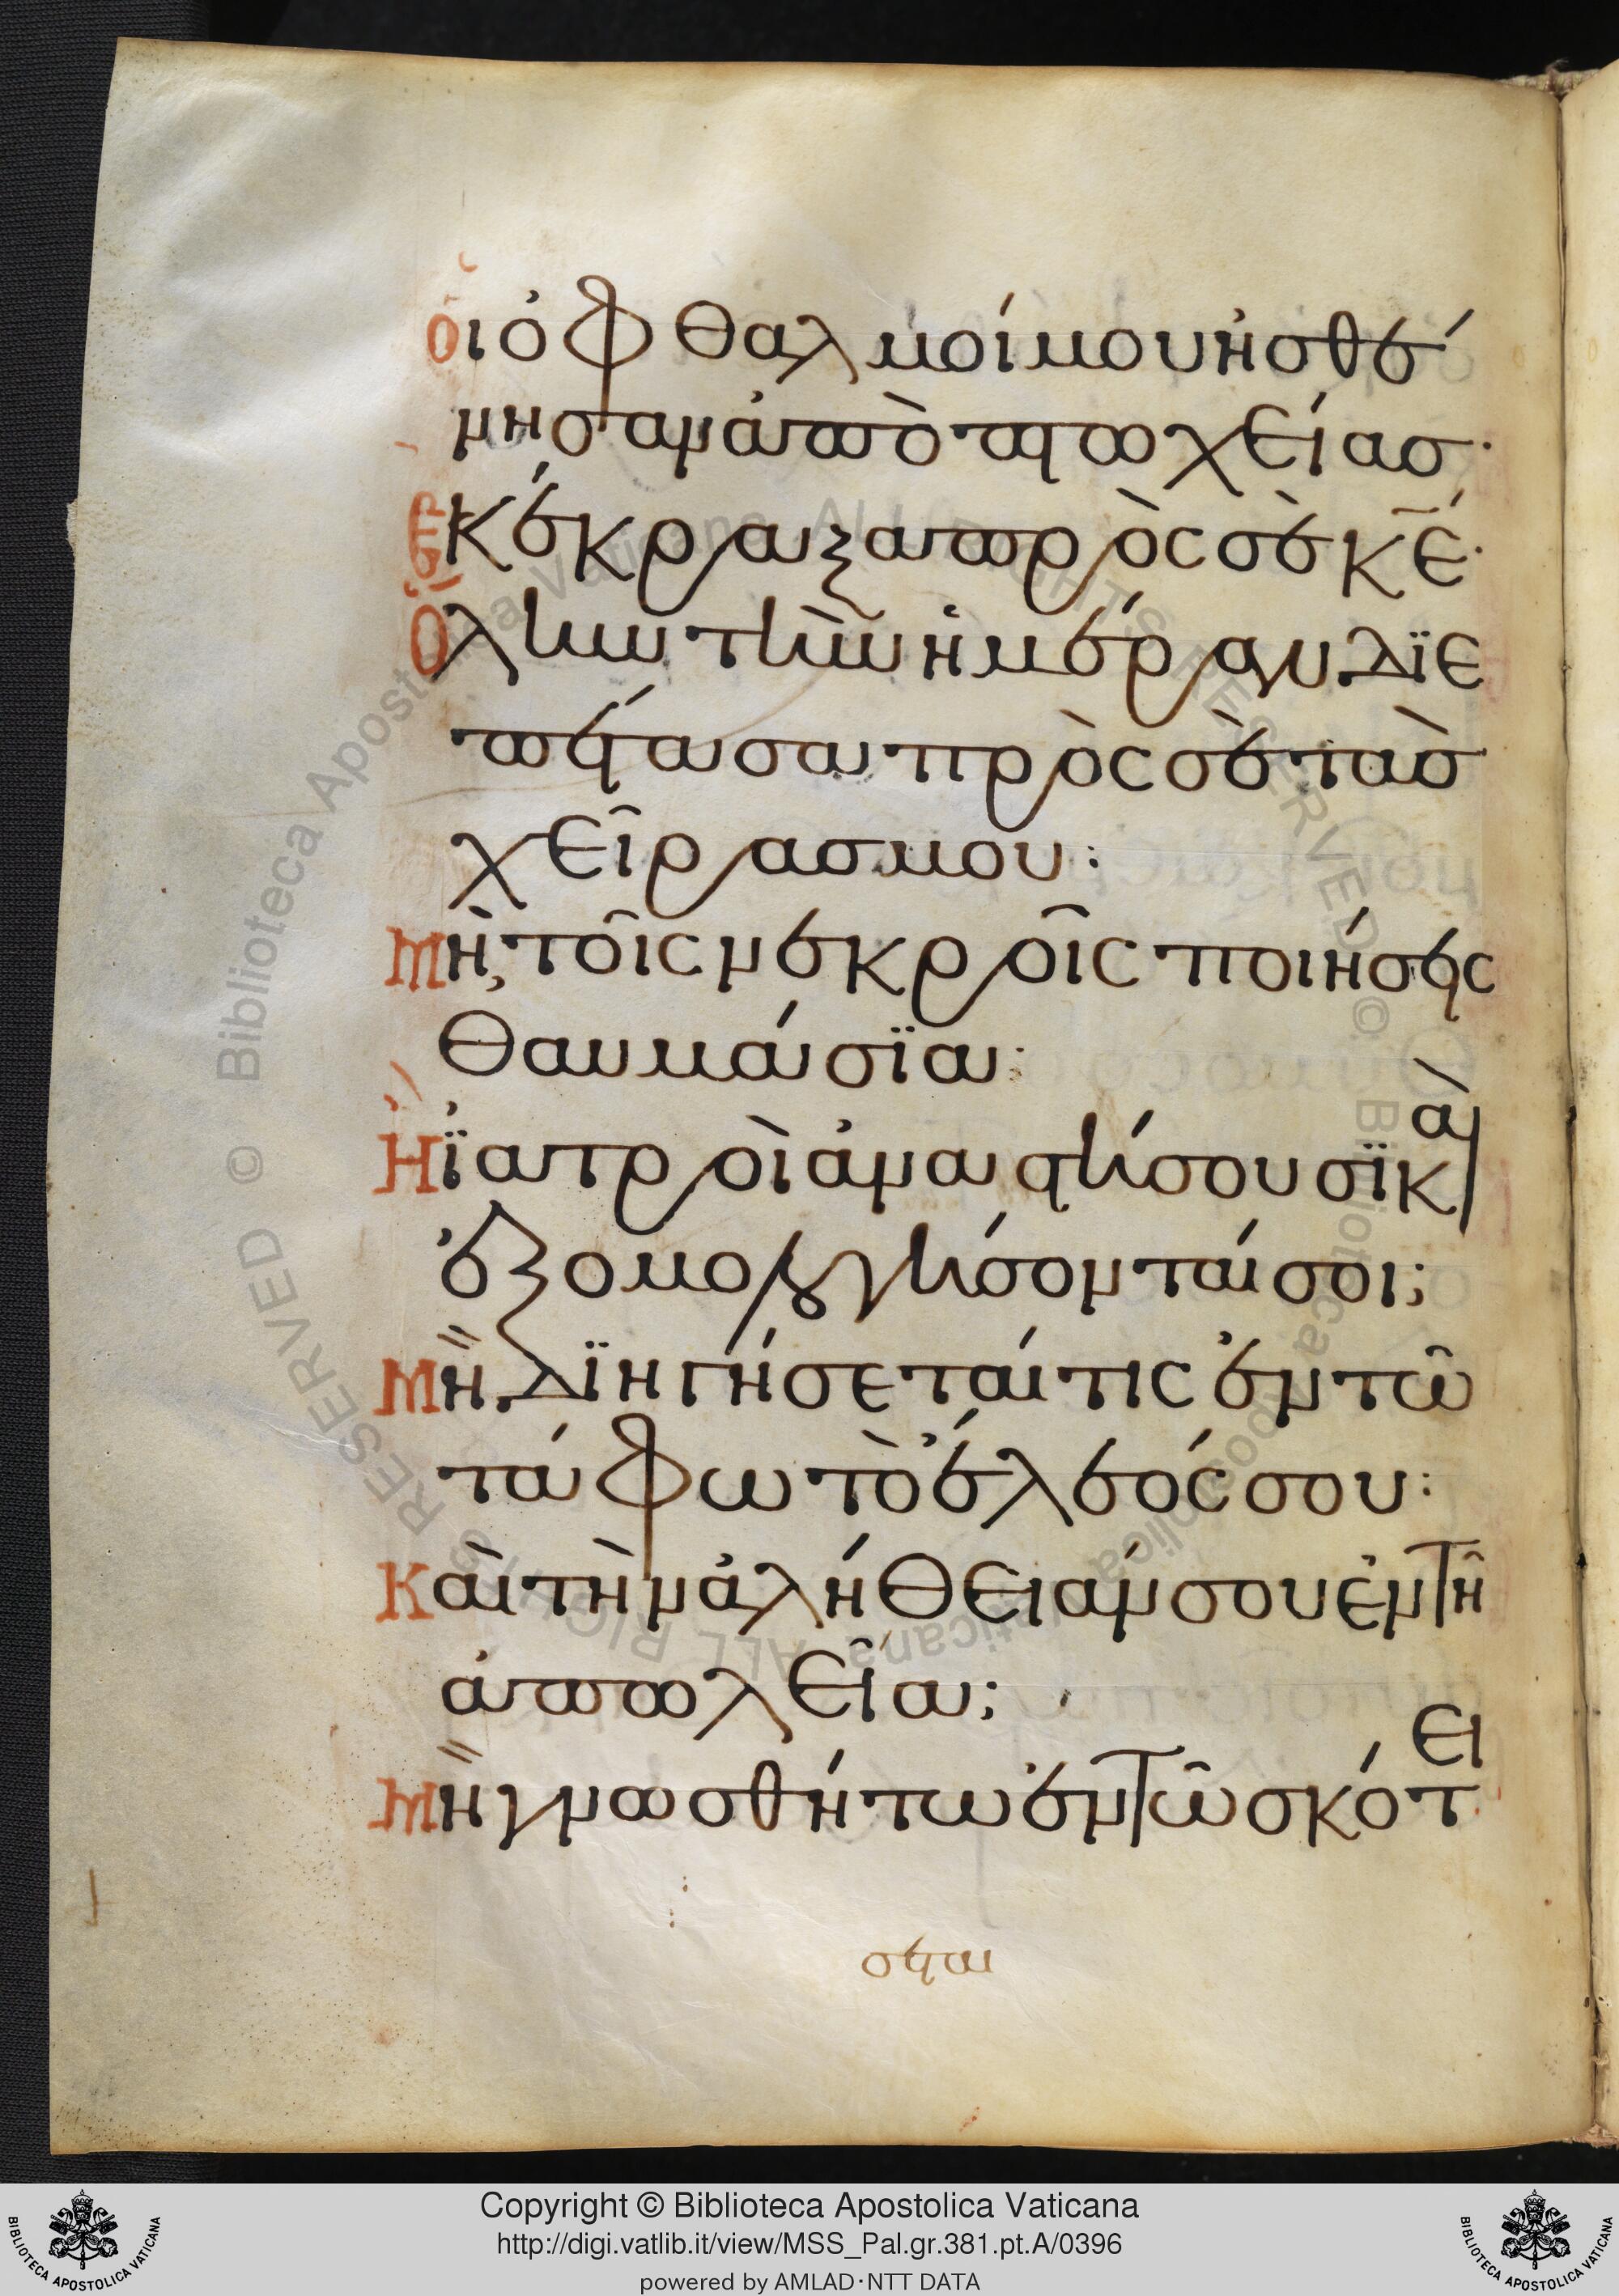 οἱ ὀφθαλμοί μου ἠσθέ
νησαν ἀπὸ πτωχείασ·
Κέκραξα πρὸς σὲ κ̅ε̅·
Ὅλην τὴν ἡμέραν δϊε
πέτασα πρὸς σὲ τὰσ
χεῖρασ μου:
Μὴ τοῖς νεκροῖς ποιήσεις
θαυμάσϊα:
Ἢ ϊατροὶ ἀναστήσουσϊ καὶ
ἐξομολογήσονταί σοι;
Μὴ δϊηγήσεταί τις ἐν τῶ
τάφω τὸ ἔλεός σου:
Καὶ τὴν ἀλήθειάν σου ἐν τῆ
ἀπωλεῖα;
Μὴ γνωσθήτω ἐν τῶ σκότει
Copyright © Biblioteca Apostolica Vaticana
http://digi.vatlib.it/view/MSS_Pal.gr.381.pt.A/0396
powered by AMLAD·NTT DATA
BIBLIOTECA APOSTOLICA VATICANA
BIBLIOTECA APOSTOLICA VATICANA
© Biblioteca Apostolica Vaticana ALL RIGHTS RESERVED